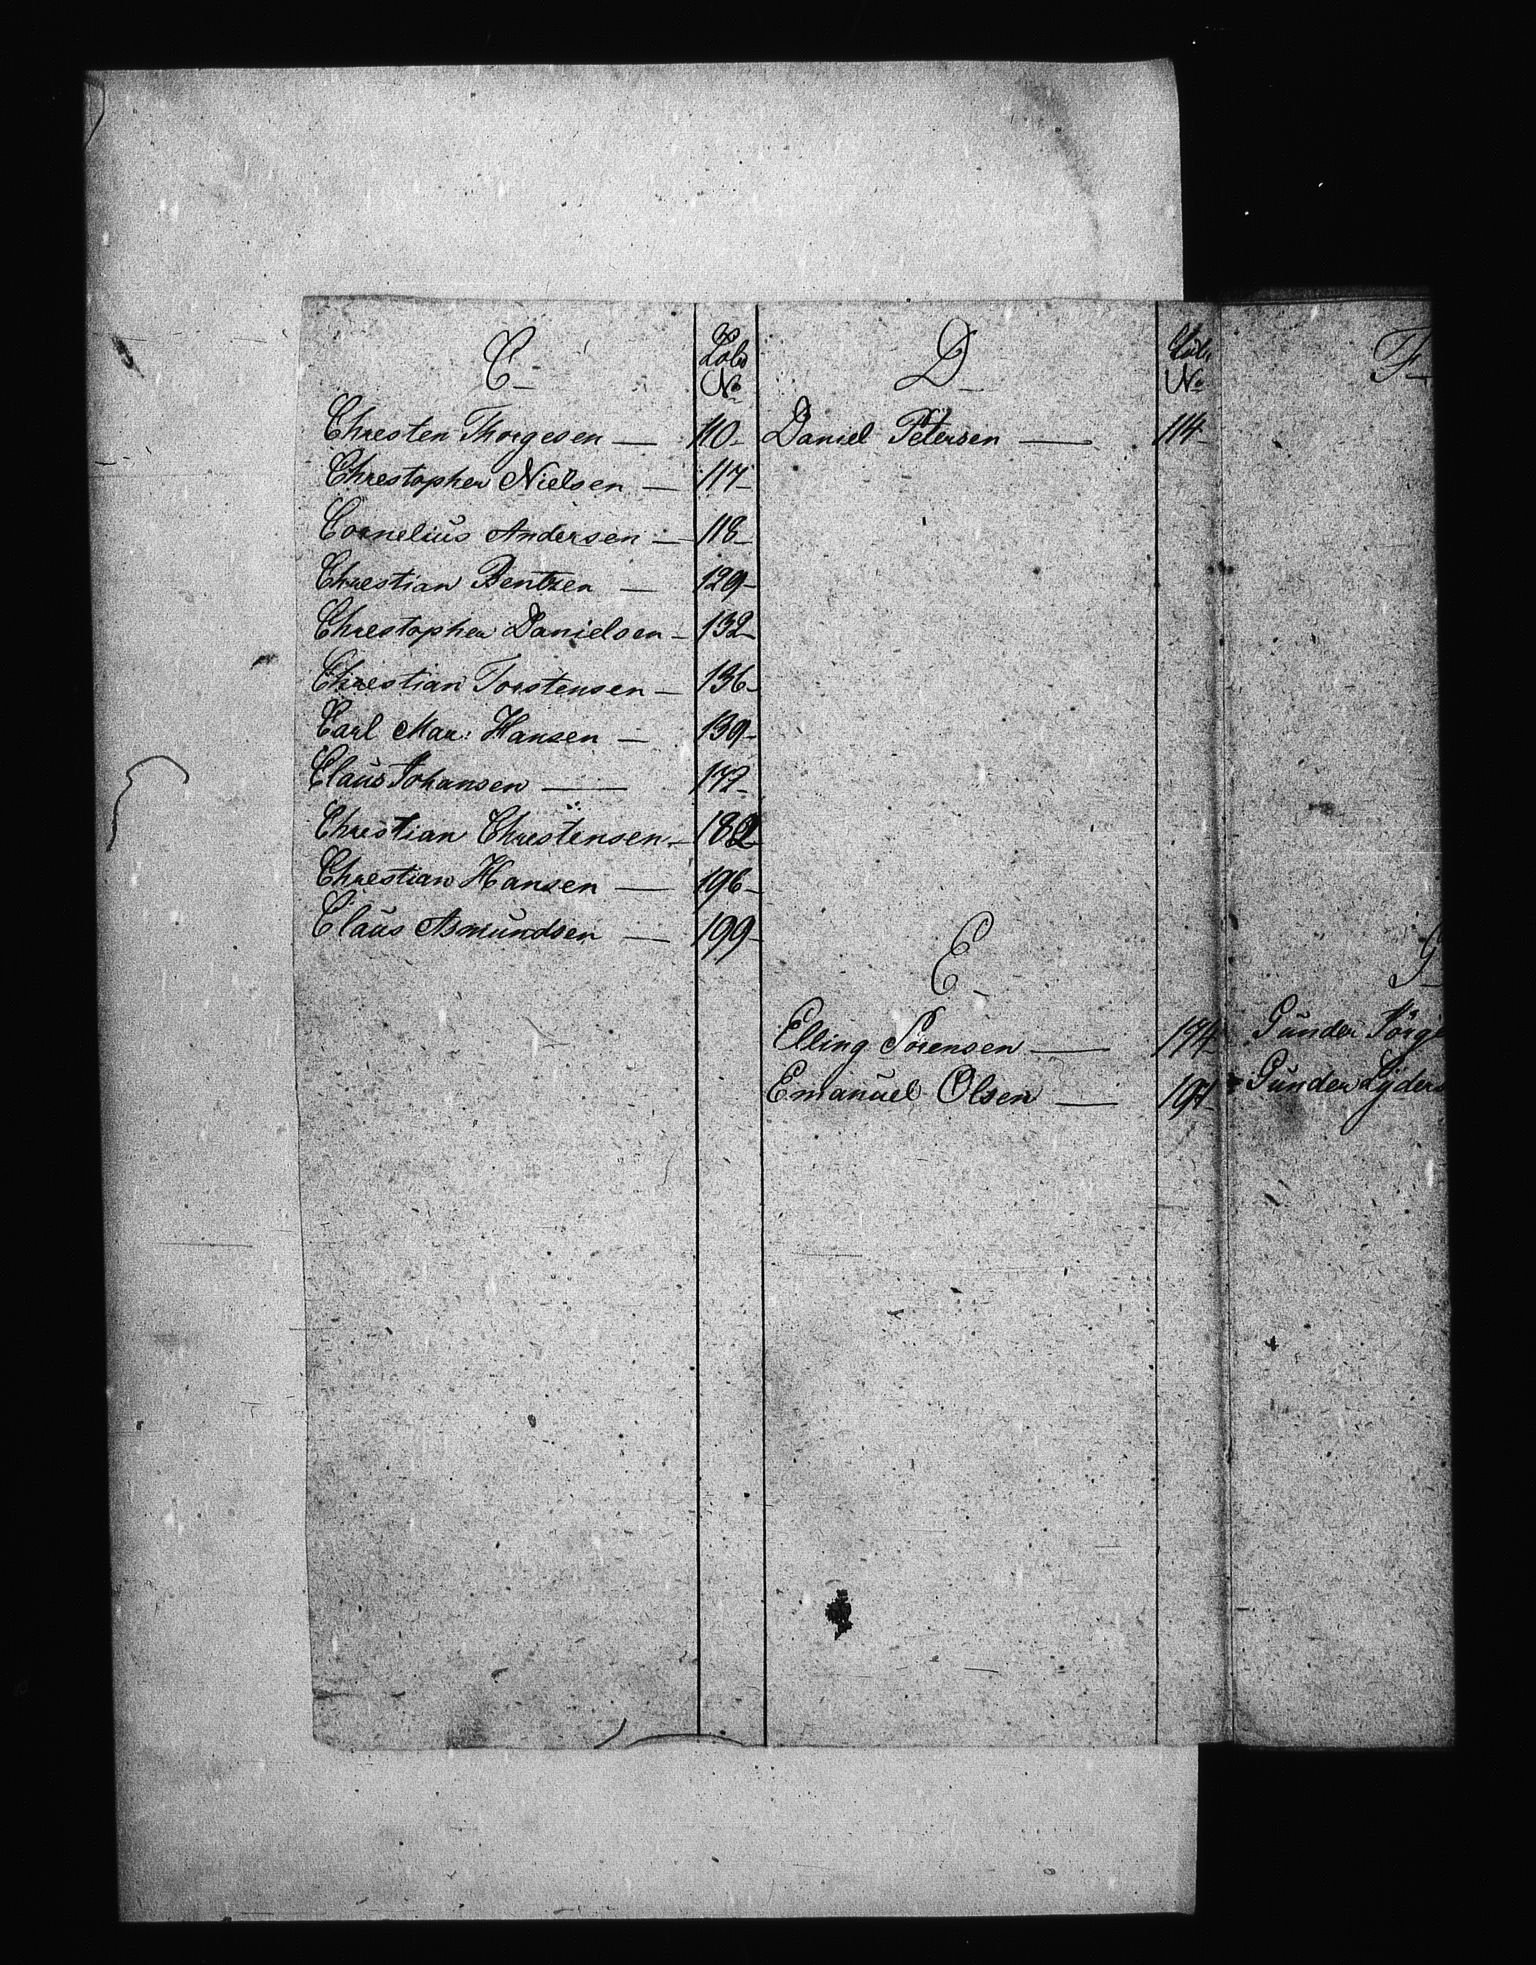 C
Løbe
No
Christen Thorgesen — 110
Christopher Nielsen — 117
Cornelius Andersen — 118
Christian Bentzen — 129
Christopher Danielsen — 132
Christian Torstensen — 136
Carl Mar: Hansen — 139
Claus Johansen — 172
Christian Christensen — 182
Christian Hansen — 196
Claus Asmundsen — 199
D
Løbe
No
Daniel Petersen — 114
E
Elling Sørensen — 174
Emanuel Olsen — 197
F
G
Gunder Jörge
Gunder Lyders